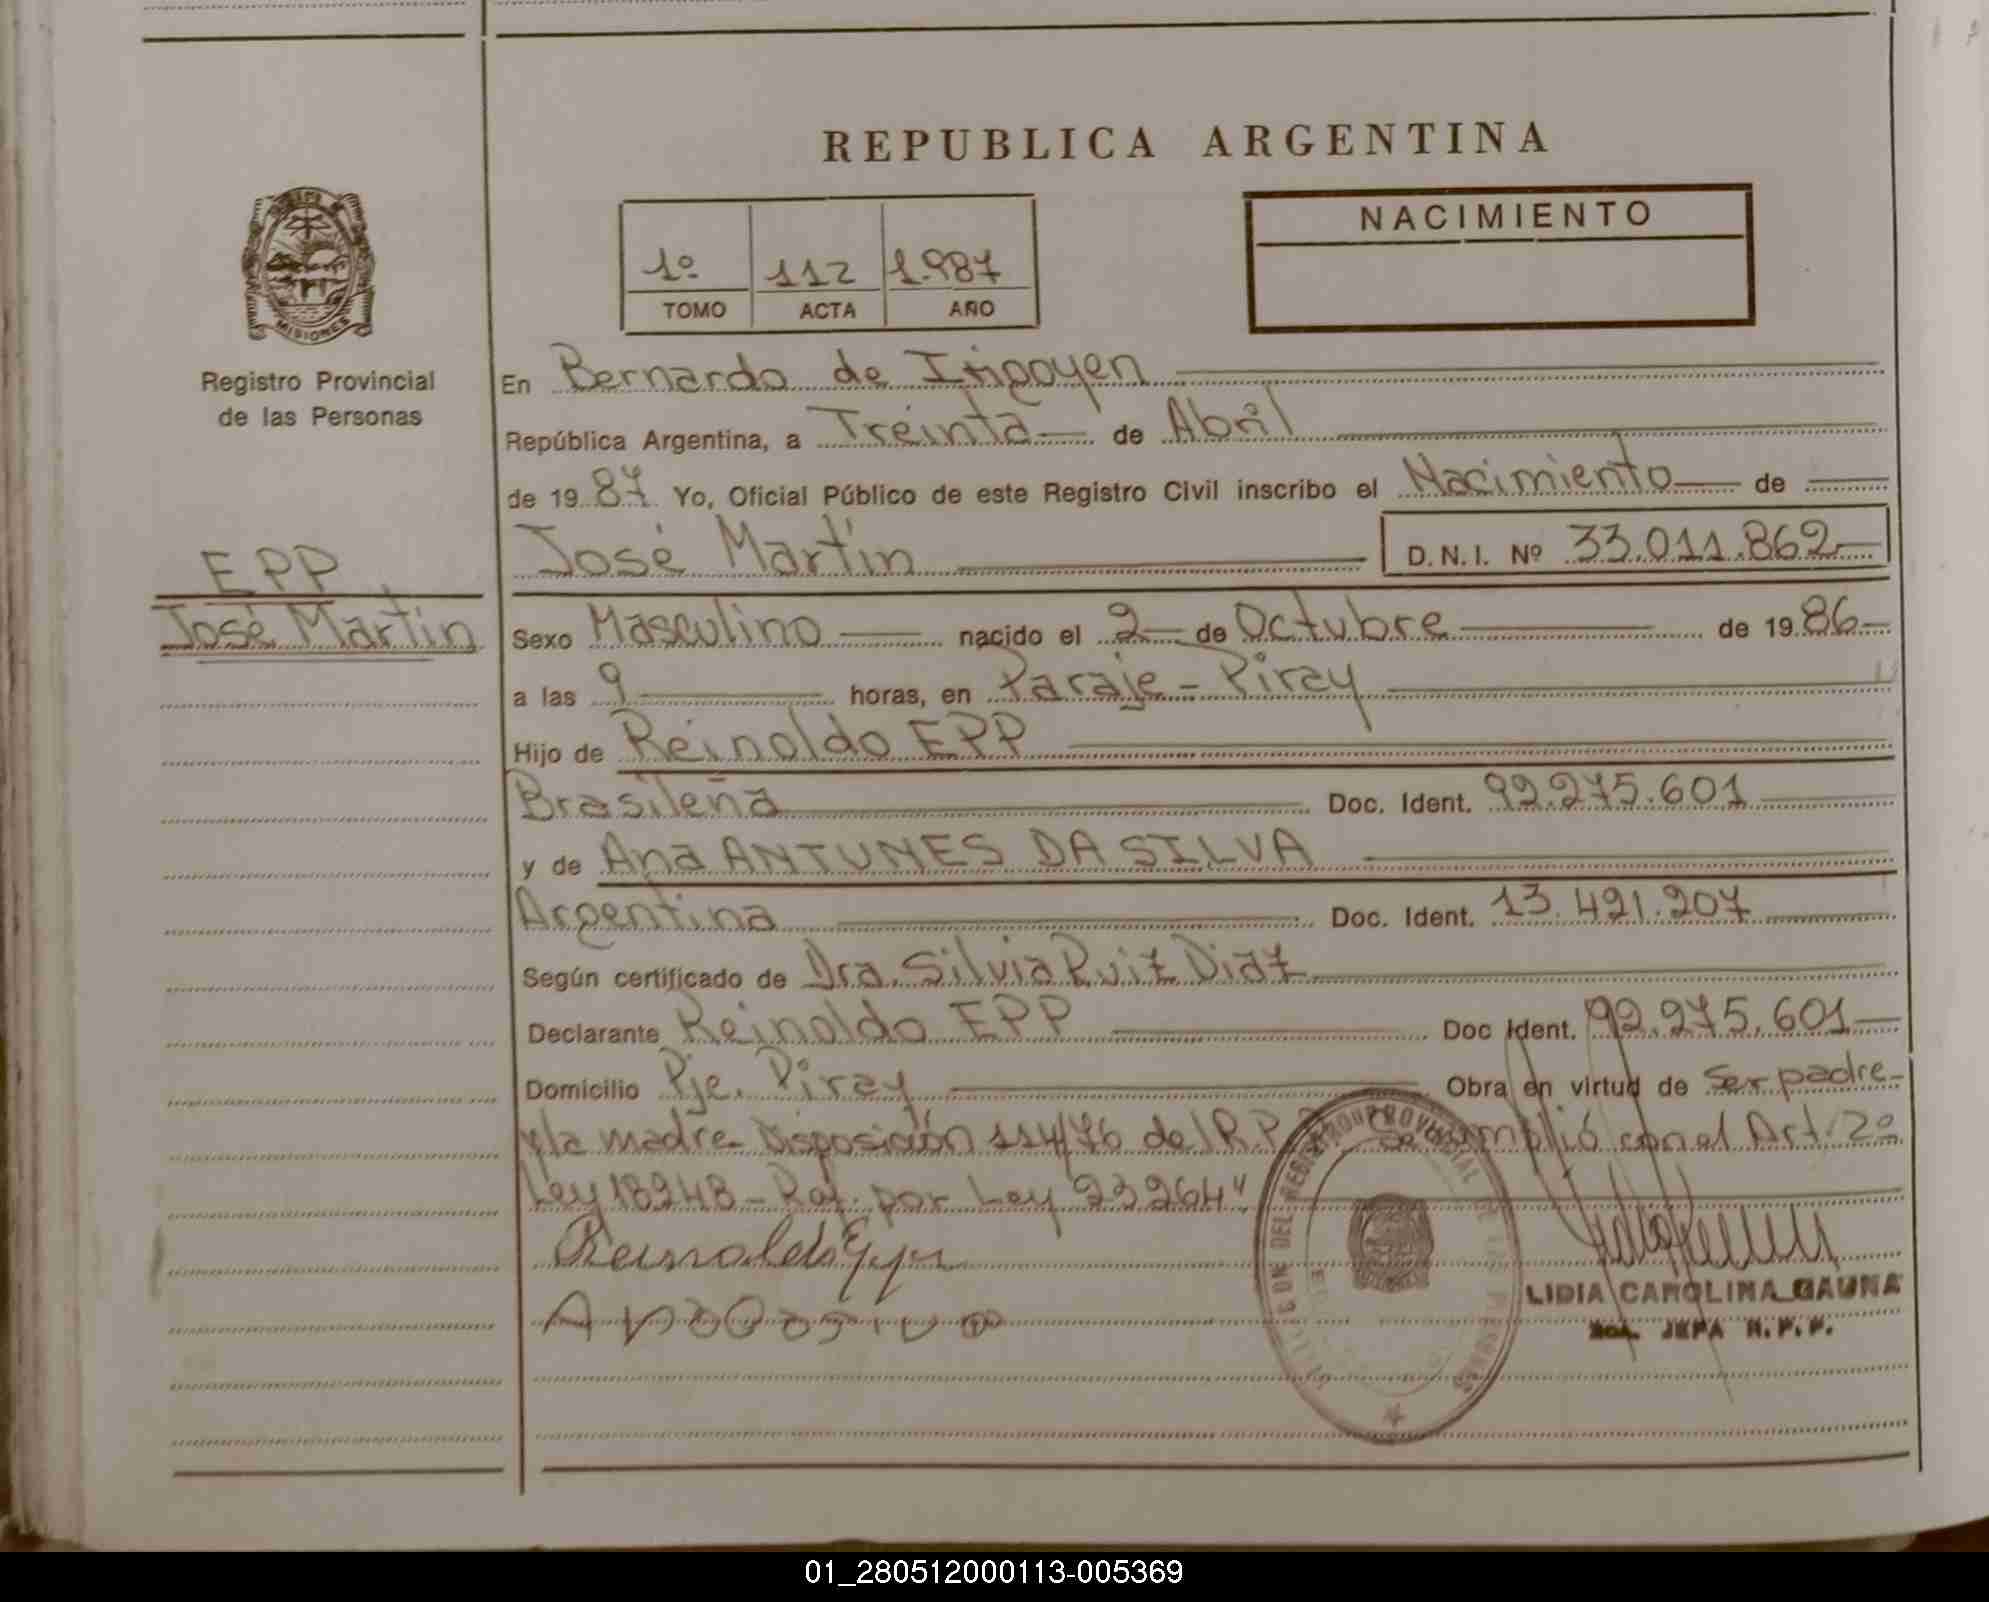 REPUBLICA ARGENTINA
1º 112 1.987
TOMO ACTA AÑO
NACIMIENTO
MISIONES
Registro Provincial
de las Personas
EPP
José Martin
En Bernardo de Irigoyen
República Argentina, a Treinta de Abril
de 1987 Yo, Oficial Público de este Registro Civil inscribo el Nacimiento de
José Martin D.N.I. Nº 33.011.862
Sexo Masculino nacido el 2 de Octubre de 1986
a las 9 horas, en Paraje - Piray
Hijo de Reinoldo EPP
Brasileña Doc. Ident. 92.275.601
y de Ana ANTUNES DA SILVA
Argentina Doc. Ident. 13.421.207
Según certificado de Dra. Silvia Ruiz Diaz
Declarante Reinoldo EPP Doc Ident. 92.275.601
Domicilio Pje. Piray Obra en virtud de ser padre
y la madre Disposición 114/76 del R.P. se cumplió con el Art. 2º
Ley 18248 - Rat. por Ley 23264"
Reinoldo Epp
LIDIA CAROLINA GAUNA
JEFA R.P.P.
01_280512000113-005369